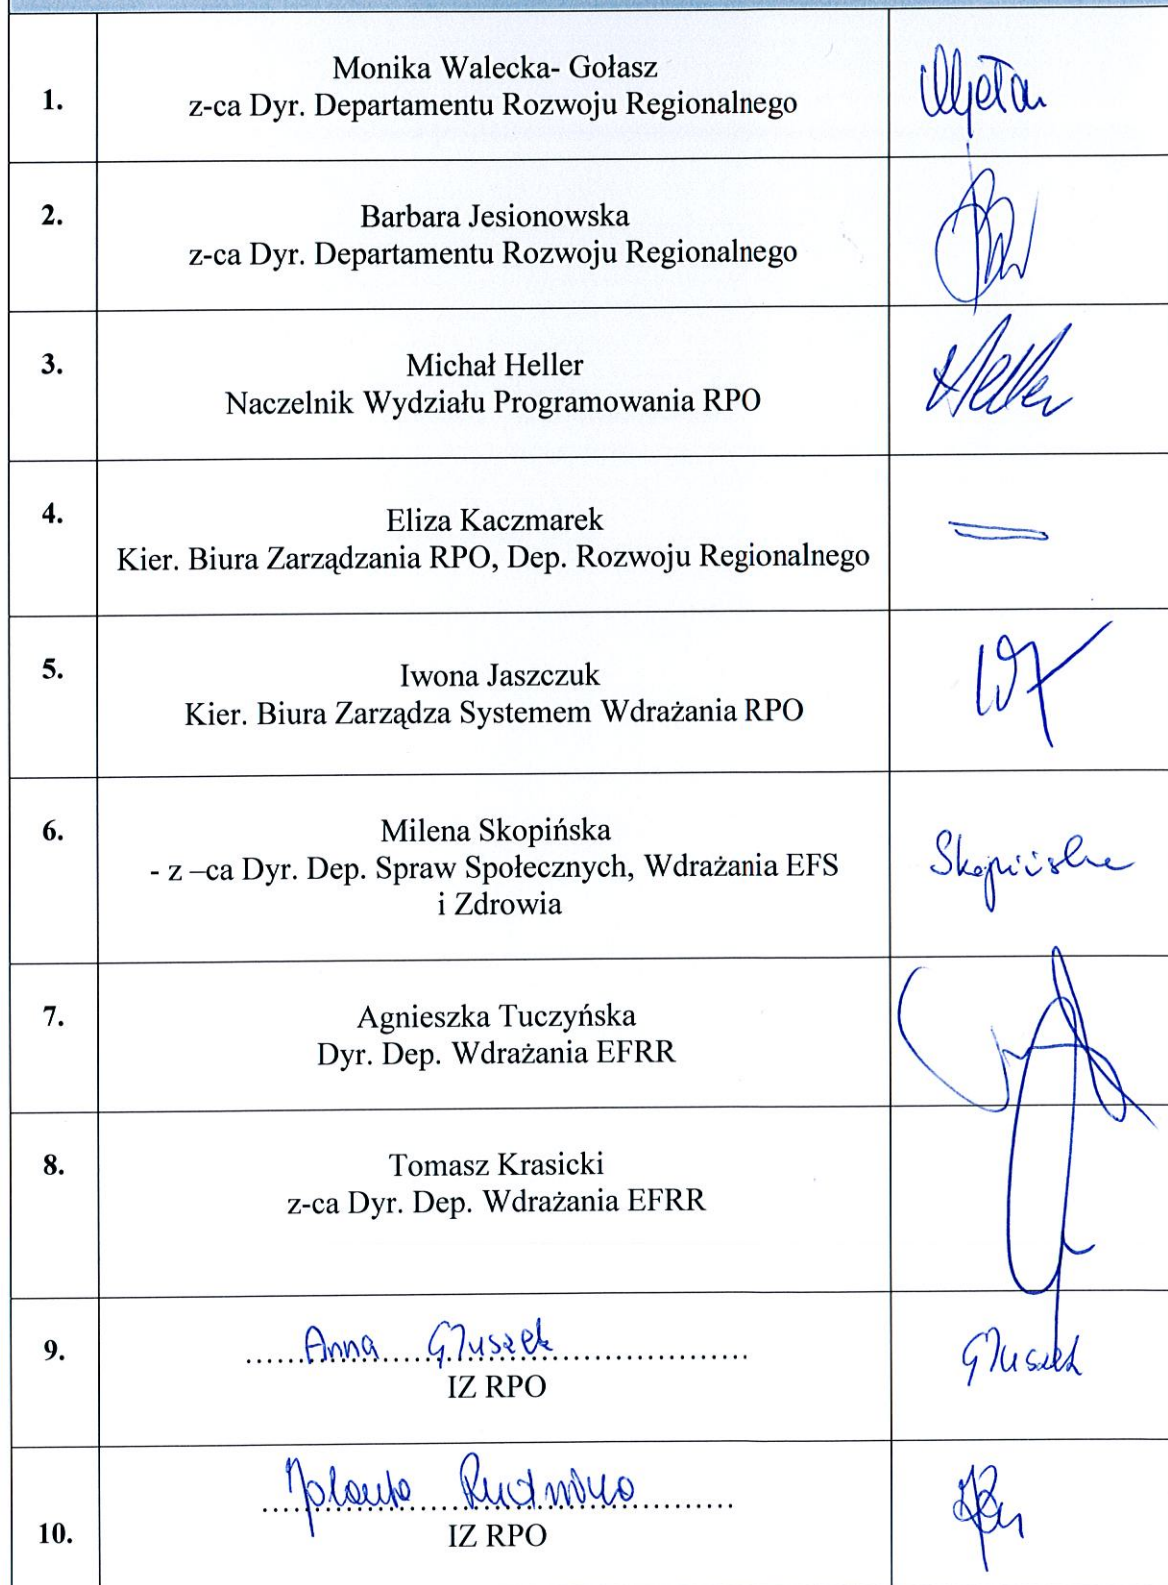 1.
Monika Walecka- Gołasz
z-ca Dyr. Departamentu Rozwoju Regionalnego
2.
Barbara Jesionowska
z-ca Dyr. Departamentu Rozwoju Regionalnego
3.
Michał Heller
Naczelnik Wydziału Programowania RPO
Heller
4.
Eliza Kaczmarek
Kier. Biura Zarządzania RPO, Dep. Rozwoju Regionalnego
5.
Iwona Jaszczuk
Kier. Biura Zarządza Systemem Wdrażania RPO
6.
Milena Skopińska
- z –ca Dyr. Dep. Spraw Społecznych, Wdrażania EFS
i Zdrowia
Skopińska
7.
Agnieszka Tuczyńska
Dyr. Dep. Wdrażania EFRR
8.
Tomasz Krasicki
z-ca Dyr. Dep. Wdrażania EFRR
9.
Anna Głuszek
IZ RPO
Głuszek
10.
Jolanta Rudnicka
IZ RPO